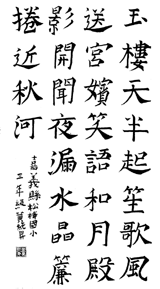 玉樓天半起笙歌風
送宮嬪笑語和月殿
影開聞夜漏水晶簾
捲近秋河
嘉義縣松梅國小
年級